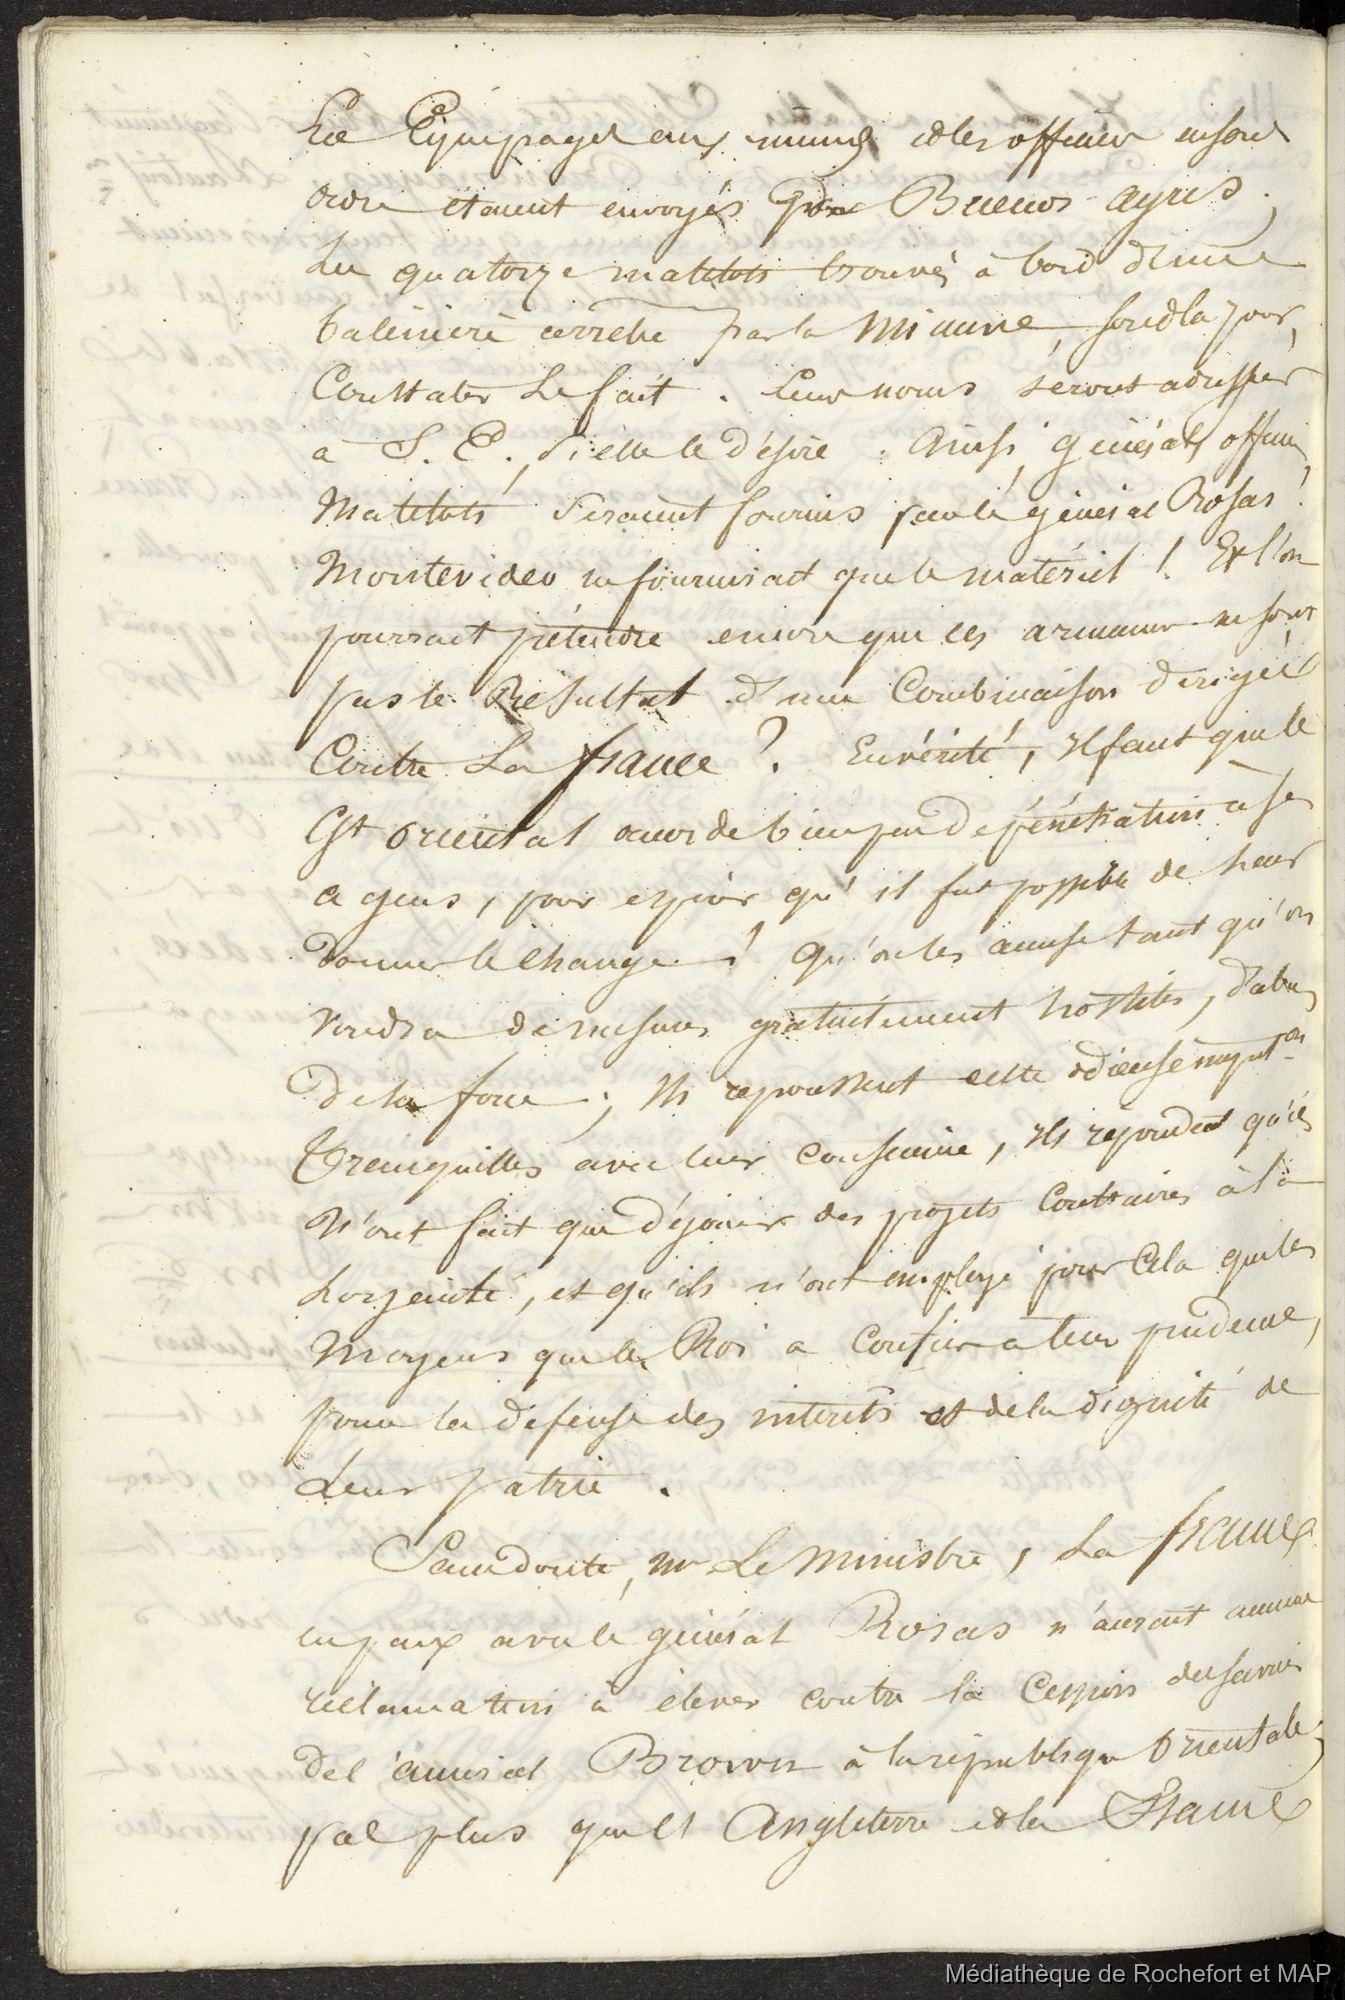 Les Equipages eux mêmes et les officiers en sous
ordre étaient envoyés par Buenos-ayres;
Les quatorze matelots trouvés à bord d'une
baleinière arrêtée par la Minerve, sont là pour
Constater le fait. Leurs noms seront adressés
à S. E., si elle le désire. Ainsi, général, officiers,
Matelots seraient fournis par le général Rosas!
Montevideo ne fournirait que le matériel! Et l'on
pourrait prétendre encore que ces armemens ne sont
pas le Résultat d'une Combinaison dirigée
Contre La france? En vérité, il faut que le
Gt oriental accorde bien peu de pénétration à ses
agens, pour espérer qu'il fut possible de leur
donner le change! Qu'on les accuse tant qu'on
voudra de mesures gratuitement hostiles, d'abus
de la force; ils repoussent cette odieuse imputon.
Tranquilles avec leur conscience, ils répondent qu'ils
N'ont fait que déjouer des projets contraires à la
Loyauté, et qu'ils n'ont employé pour cela que les
Moyens que le Roi a confiés a leur prudence,
pour la défense des intérêts et de la dignité de
Leur patrie.
Sans doute, mr Le Ministre, La france
en paix avec le général Rosas n'aurait aucune
réclamation à élever contre la Cession des services
de l'amiral Brown à la république Orientale;
pas plus que l'Angleterre et la France